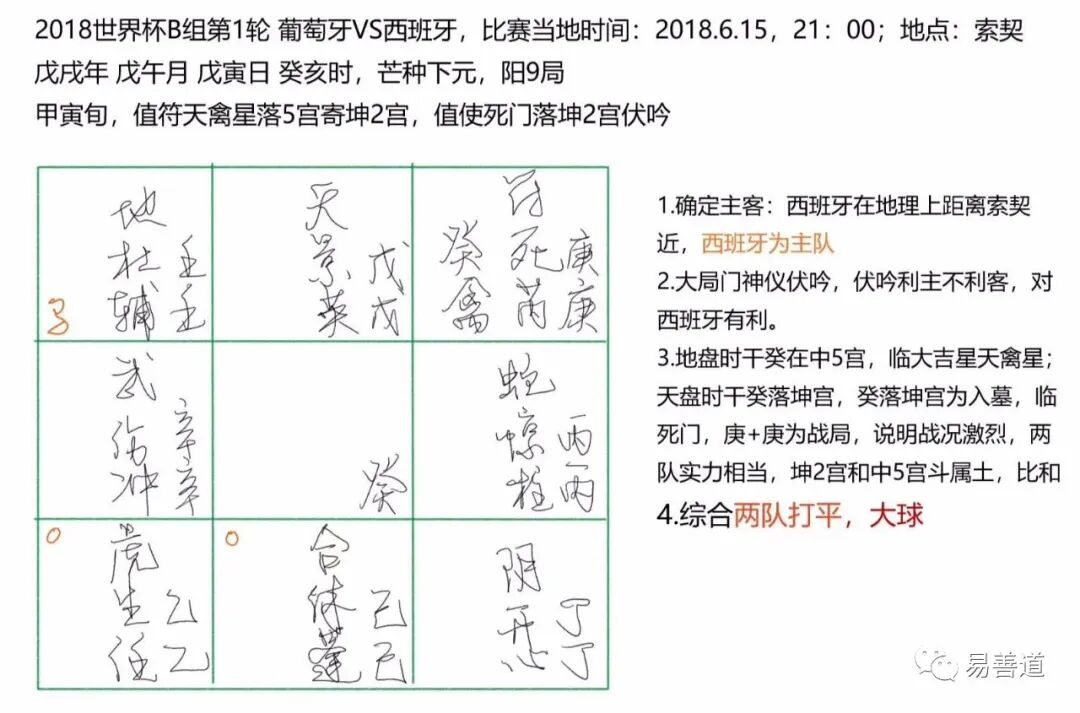 2018世界杯B组第1轮 葡萄牙VS西班牙，比赛当地时间：2018.6.15，21：00；地点：索契
戊戌年 戊午月 戊寅日 癸亥时，芒种下元，阳9局
甲寅旬，值符天禽星落5宫寄坤2宫，值使死门落坤2宫伏吟
地
杜 壬
马 辅 壬
天
景 戊
英 戊
符
癸 死 庚
禽 芮 庚
武
伤 辛
冲 辛
癸
蛇
惊 丙
柱 丙
○ 虎
生 乙
任 乙
○ 合
休 己
蓬 己
阴
开 丁
心 丁
1.确定主客：西班牙在地理上距离索契
近，西班牙为主队
2.大局门神仪伏吟，伏吟利主不利客，对
西班牙有利。
3.地盘时干癸在中5宫，临大吉星天禽星；
天盘时干癸落坤宫，癸落坤宫为入墓，临
死门，庚+庚为战局，说明战况激烈，两
队实力相当，坤2宫和中5宫斗属土，比和
4.综合两队打平，大球
易善道